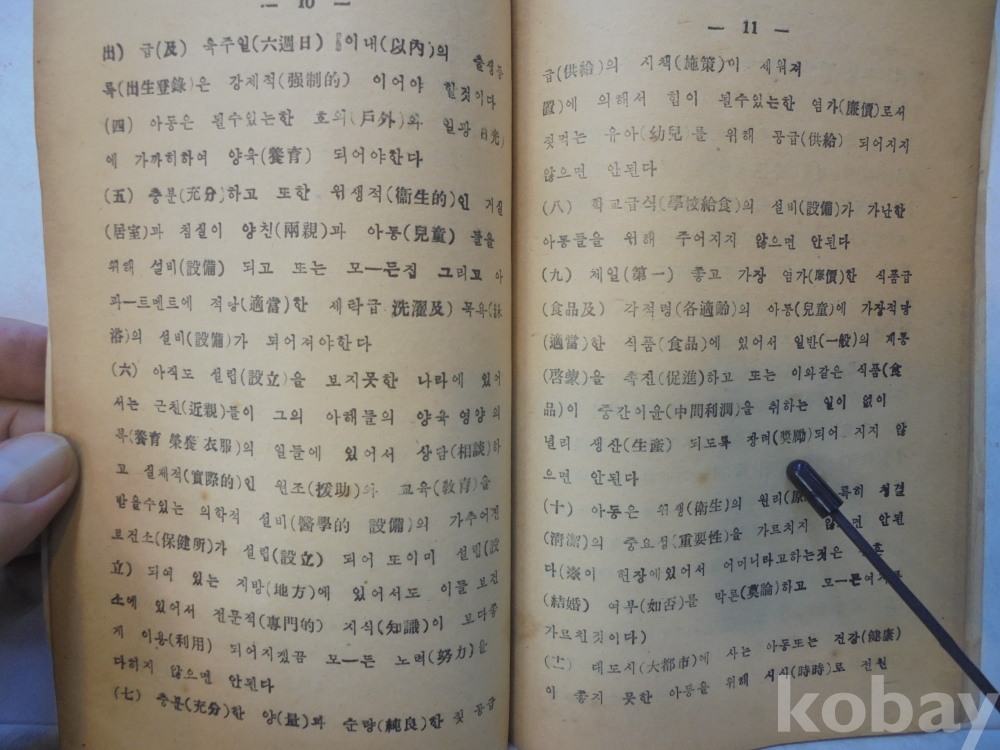 — 10 —
出) 급(及) 육주일(六週日) 이내(以內)의 출생등
록(出生登錄)은 강제적(强制的) 이어야 할것이다
(四) 아동은 될수있는한 호외(戶外)와 일광 日光)
에 가까히하여 양육(養育) 되어야한다
(五) 충분(充分)하고 또한 위생적(衞生的)인 거실
(居室)과 침실이 양친(兩親)과 아동(兒童) 들을
위해 설비(設備) 되고 또는 모—든집 그리고 아
파—트멘트에 적당(適當)한 세탁급 洗濯及) 목욕(沐
浴)의 설비(設備)가 되어져야한다
(六) 아직도 설립(設立)을 보지못한 나라에 있어
서는 근친(近親)들이 그의 아해들의 양육 영양의
복(養育 榮養 衣服)의 일들에 있어서 상담(相談)하
고 실제적(實際的)인 원조(援助)와 교육(敎育)을
받을수있는 의학적 설비(醫學的 設備)의 가추어진
보건소(保健所)가 설립(設立) 되어 또이미 설립(設
立) 되여 있는 지방(地方)에 있어서도 이들 보건
소에 있어서 전문적(專門的) 지식(知識)이 보다좋
게 이용(利用) 되어지겠끔 모—든 노력(努力)을
다하지 않으면 안된다
(七) 충분(充分)한 양(量)과 순량(純良)한 젓 공급
— 11 —
급(供給)의 시책(施策)이 세워져
置)에 의해서 힘이 될수있는한 염가(廉價)로서
젓먹는 유아(幼兒)를 위해 공급(供給) 되어지지
않으면 안된다
(八) 학교급식(學校給食)의 설비(設備)가 가난한
아동들을 위해 주어지지 않으면 안된다
(九) 체일(第一) 좋고 가장 염가(廉價)한 식품급
(食品及) 각적령(各適齡)의 아동(兒童)에 가장적당
(適當)한 식품(食品)에 있어서 일반(一般)의 계몽
(啓蒙)을 촉진(促進)하고 또는 이와같은 식품(食
品)이 중간이윤(中間利潤)을 취하는 일이 없이
널리 생산(生産) 되도록 장려(奬勵)되어 지지 않
으면 안된다
(十) 아동은 위생(衛生)의 원리(原 특히 청결
(淸潔)의 중요성(重要性)을 가르치지 않으면 안된
다(이 현장에있어서 어머니라고하는것은
(結婚) 여부(如否)를 막론(莫論)하고 모—든여자를
가르친것이다)
(十一) 대도시(大都市)에 사는 아동또는 건강(健康)
이 좋지 못한 아동을 위해 시시(時時)로 전원
kobay